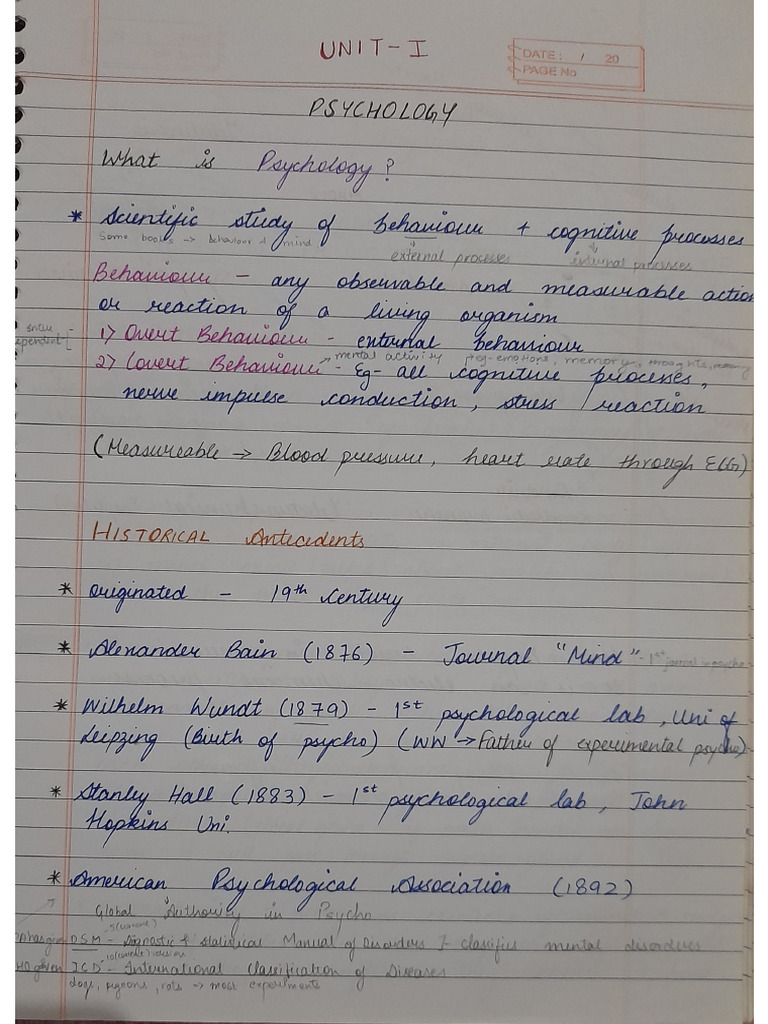 UNIT-I
DATE: / 20
PAGE No
PSYCHOLOGY
What is Psychology?
* Scientific study of behaviour + cognitive processes
Some books → behaviour + mind
external processes internal processes
Behaviour - any observable and measurable action
or reaction of a living organism
1) Overt Behaviour - external behaviour
→ mental activity eg-emotions, memory, thoughts,
2) Covert Behaviour - Eg- all cognitive processes,
nerve impulse conduction, stress reaction
(Measureable → Blood pressure, heart rate through ECG)
HISTORICAL Antecedents
* Originated - 19th Century
* Alexander Bain (1876) - Journal "Mind" - 1st journal
* Wilhelm Wundt (1879) - 1st psychological lab, Uni of
Leipzing (Birth of psycho) (WW → Father of experimental psycho)
* Stanley Hall (1883) - 1st psychological lab, John
Hopkins Uni.
* American Psychological Association (1892)
Global Authority in Psycho
5(current)
DSM - Diagnostic & Statistical Manual of Disorders I- classifies mental disorders
10(current) version
ICD - International Classification of Diseases
dogs, pigeons, rats → most experiments